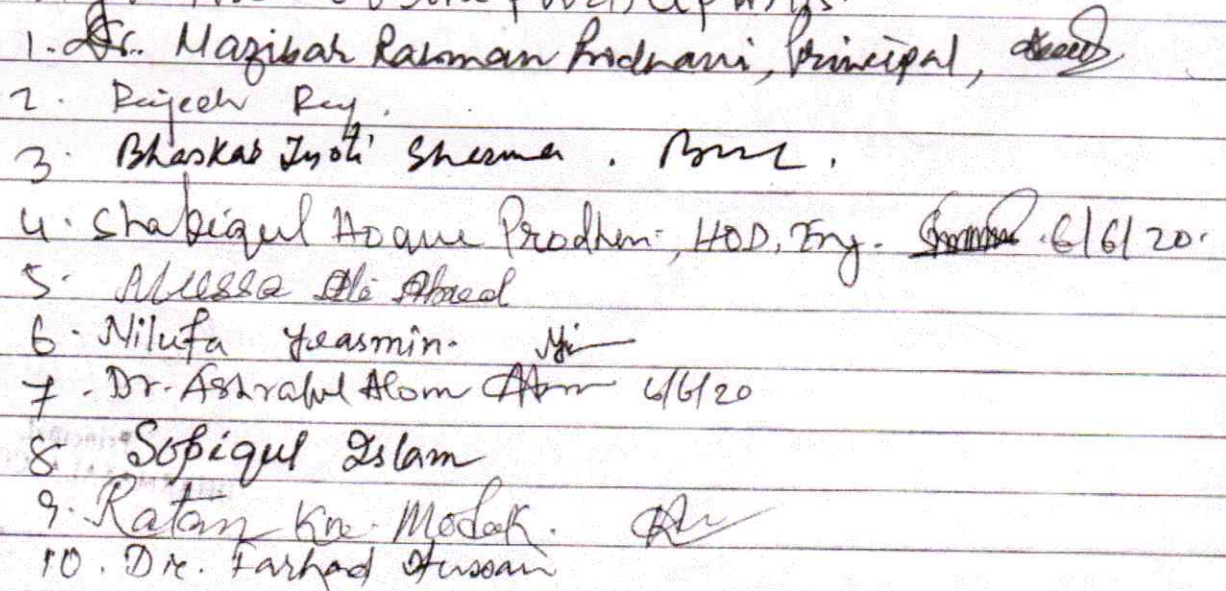 1. Dr. Mazibar Rahman Prodhani, Principal,
2. Rajeeb Ray.
3. Bhaskar Jyoti Sharma.
4. Shafiqul Hoque Prodhan, HOD, Eng. 6/6/20.
5. Mussa Ali Ahmed
6. Nilufa Yeasmin.
7. Dr. Ashraful Alom 6/6/20
8. Sofiqul Islam
9. Ratan Kr. Modak.
10. Dr. Farhad Hussain